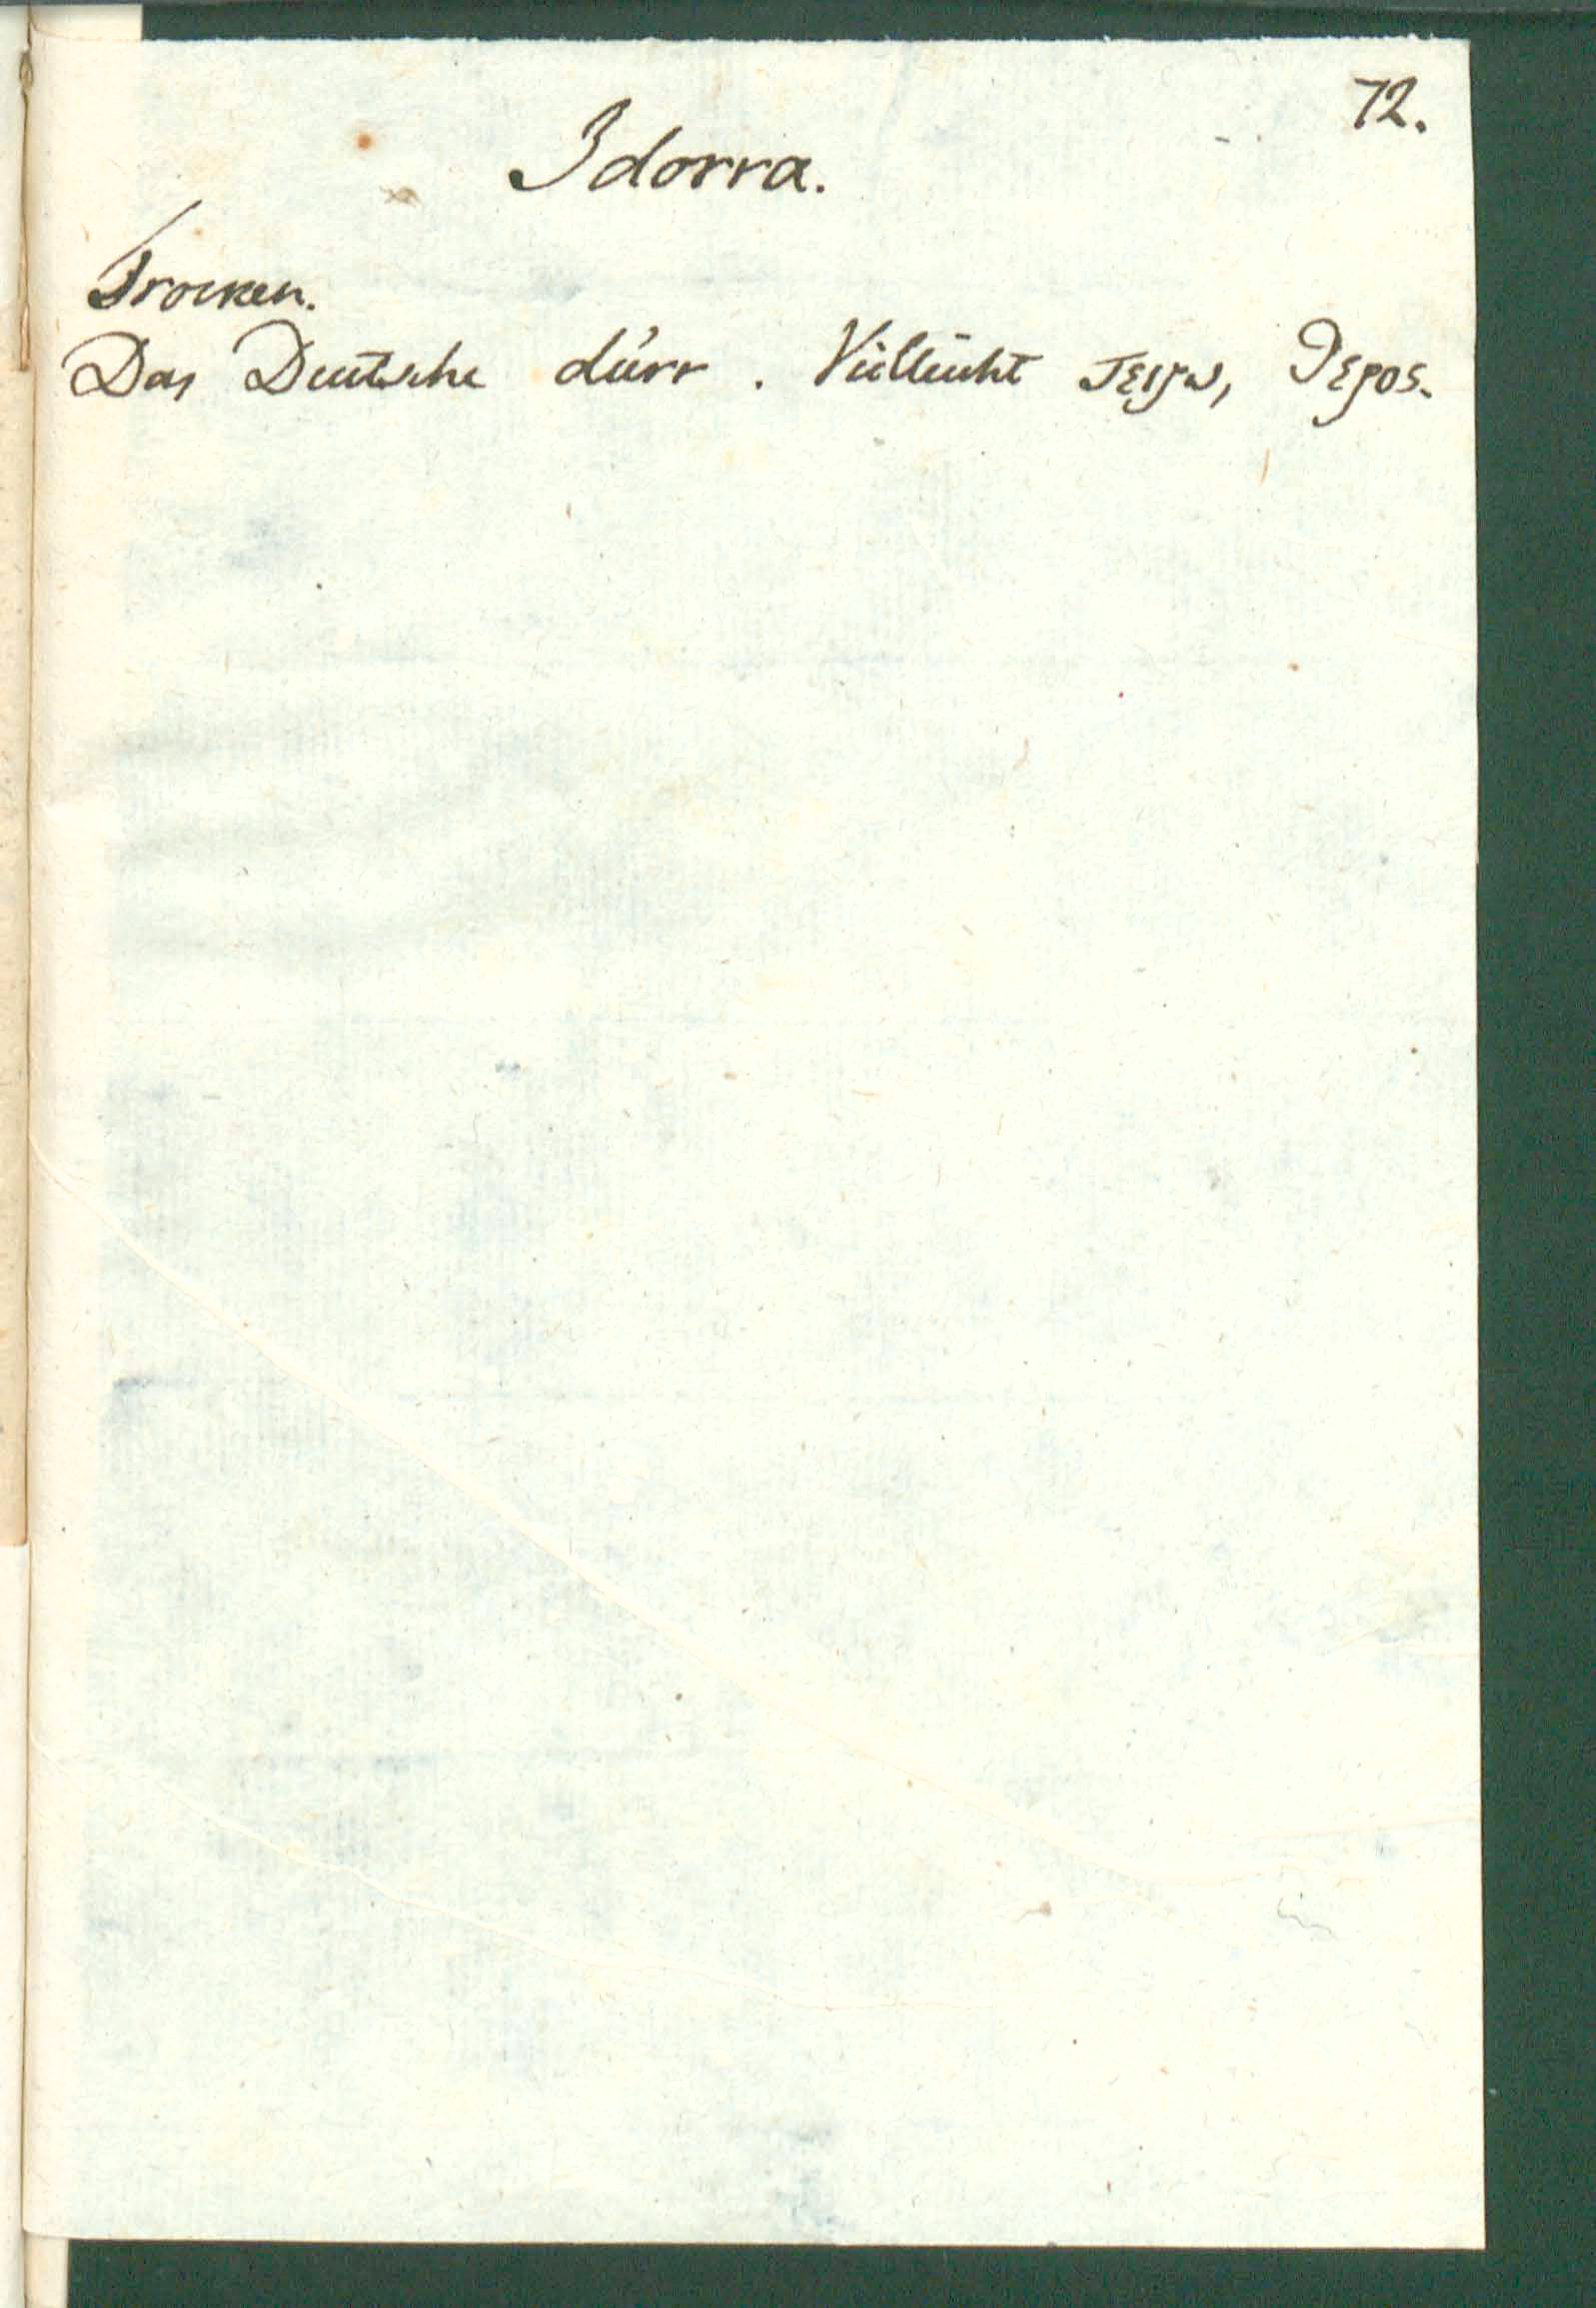 72.
Idorra.
Trocken.
Das Deutsche dürr. Vielleicht τειρω, θερος.